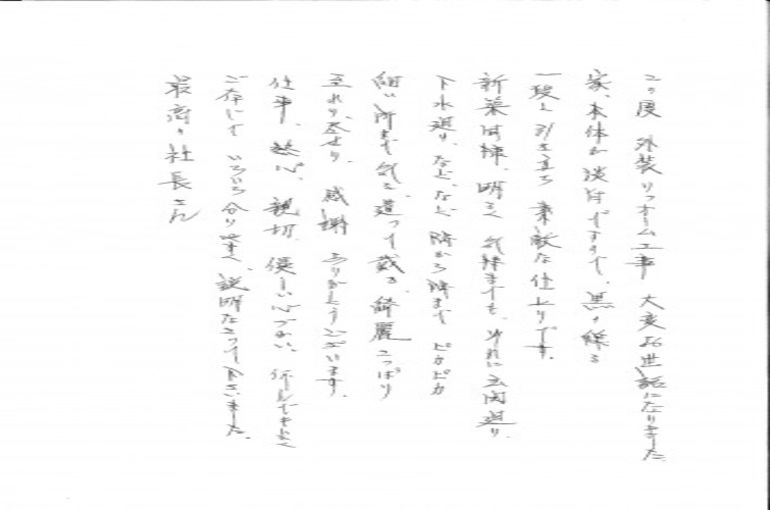 この度 外装リフォーム工事 大変お世話になりました
家、本体が淡付ですので、黒の線が
一段と引き立ち 素敵な仕上りです。
新築同様、明るく 気持まずも、それに玄関廻り、
下水廻り、など、など 隅から隅まで ピカピカ
細い所まで気を遣って戴き 綺麗さっぱり
至れり、尽せり、感謝 ありがとうございます。
仕事、熱心、親切、優しい心づかい、何んでもよく
ご存じで いろいろ分り易く、説明なさって下さいました。
最高の社長さん